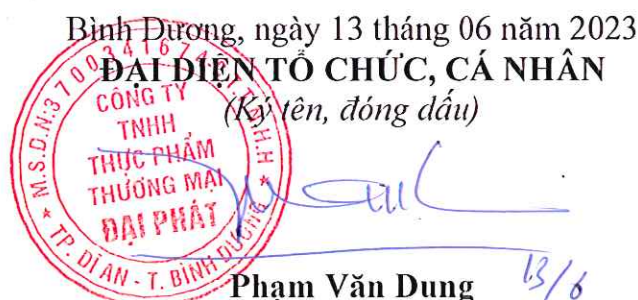 Bình Dương, ngày 13 tháng 06 năm 2023
ĐẠI DIỆN TỔ CHỨC, CÁ NHÂN
(Ký tên, đóng dấu)
CÔNG TY
TNHH
THỰC PHẨM
THƯƠNG MẠI
ĐẠI PHÁT
TP. DĨ AN - T. BÌNH DƯƠNG
Phạm Văn Dung
13/6